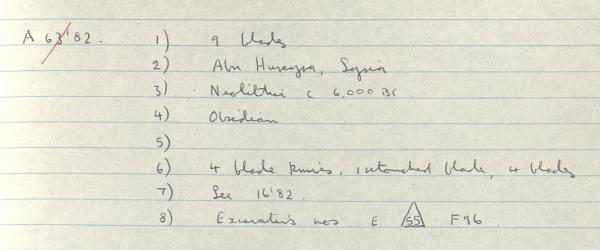 A 63'82. 1) 9 blades
2) Abu Hureyra, Syria
3) Neolithic c 6,000 BC.
4) Obsidian
5)
6) 4 blade knives, 1 retouched blade, 4 blades
7) See 16'82.
8) Excavator's nos. E 55 F96